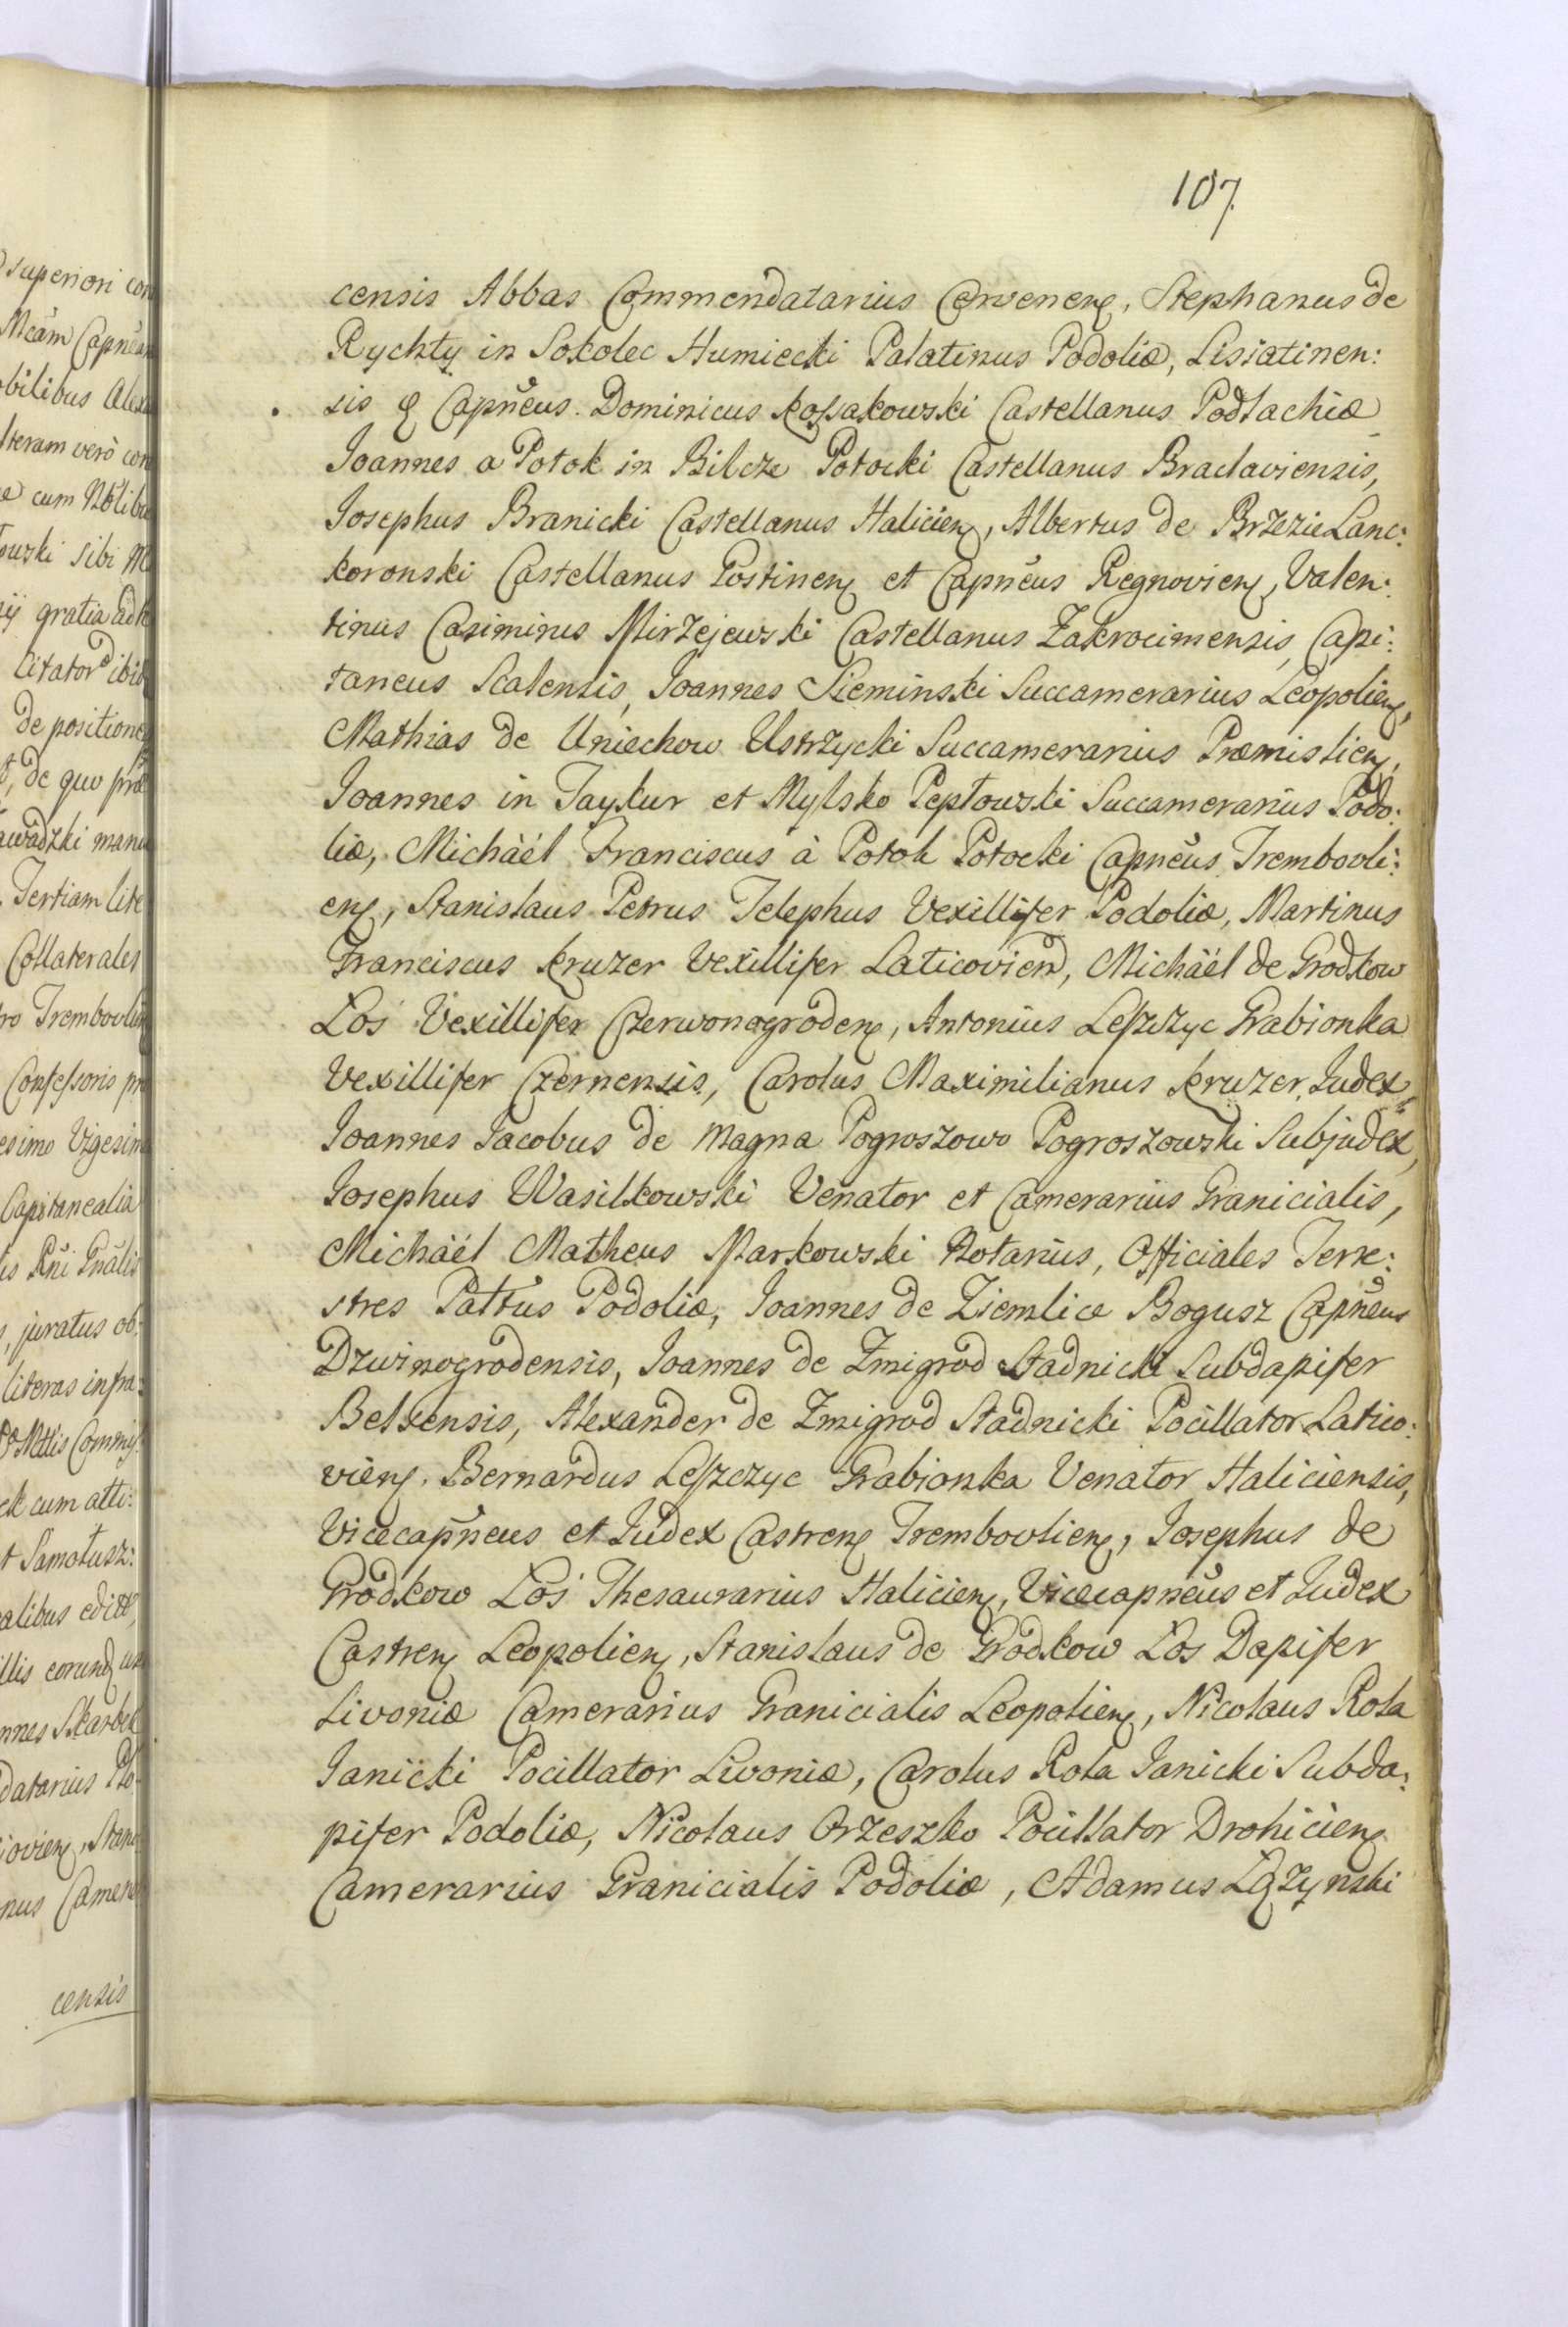 107.
censis Abbas Commendatarius Cervenen, Stephanus de
Rychty in Sokolec Humiecki Palatinus Podoliæ, Lisiatinen:
sis & Capněus. Dominicus Kossakowski Castellanus Podlachiæ
Joannes a Potok in Bilcze Potocki Castellanus Braclaviensis,
Josephus Branicki Castellanus Halicien, Albertus de Brzezie Lanc:
koronski Castellanus Postinen et Capněus Regnovien, Valen:
tinus Casimirus Mirzejewski Castellanus Zakrocimensis, Capi:
taneus Scalensis, Joannes Sieminski Succamerarius Leopolien,
Mathias de Uniechow Ustrzycki Succamerarius Præmislien,
Joannes in Taykur et Mylsko Peptowski Succamerarius Podo:
liæ, Michäél Franciscus à Potok Potocki Capněus Trembovli:
en, Stanislaus Petrus Telephus Vexillifer Podoliæ, Martinus
Franciscus Kruzer Vexillifer Laticovien, Michäél de Grodkow
Łoś Vexillifer Czerwonogroden, Antonius Leszczyc Grabionka
Vexillifer Czernensis, Carolus Maximilianus Kruzer Judex,
Joannes Jacobus de Magna Pogroszowo Pogroszowski Subjudex,
Josephus Wasilkowski Venator et Camerarius Granicialis,
Michäél Matheus Markowski Notarius, Officiales Terre:
stres Pattus Podoliæ, Joannes de Ziemlice Bogusz Capněus
Dzwinogrodensis, Joannes de Zmigrod Stadnicki Subdapifer
Belzensis, Alexander de Zmigrod Stadnicki Pocillator Latico:
vien. Bernardus Leszczyc Grabionka Venator Haliciensis,
Vicecapněus et Judex Castren Trembovlien, Josephus de
Grodkow Łoś Thesaurarius Halicien, Vicecapněus et Judex
Castren Leopolien, Stanislaus de Grodkow Łos Dapifer
Livoniæ Camerarius Granicialis Leopolien, Nicolaus Rola
Janicki Pocillator Livoniæ, Carolus Rola Janicki Subda:
pifer Podoliæ, Nicolaus Orzeszko Pocillator Drohicien
Camerarius Granicialis Podoliæ, Adamus Łązynski
superiori
Capněa
gratia
de positione
de quo
Tertiam
Collaterales
Confessoris
Capitanealia
juratus ob:
literas infra:
cum atti:
Samotusz:
censis